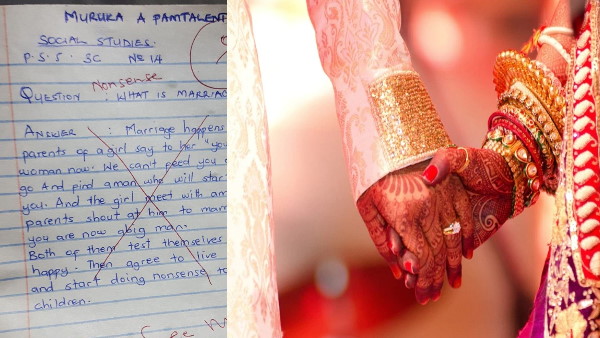 MURUKA A PAMTALENT
SOCIAL STUDIES.
P.S.S. 3C Nº 14
Nonsense
QUESTION : WHAT IS MARRIAG
ANSWER : Marriage happens
parents of a girl say to her "you
woman now. We can't feed you a
go And find a man who will star
you. And the girl meet with am
parents shout at him to marr
you are now a big man.
Both of them test themselves
happy. Then agree to live
and start doing nonsense to
children.
See M